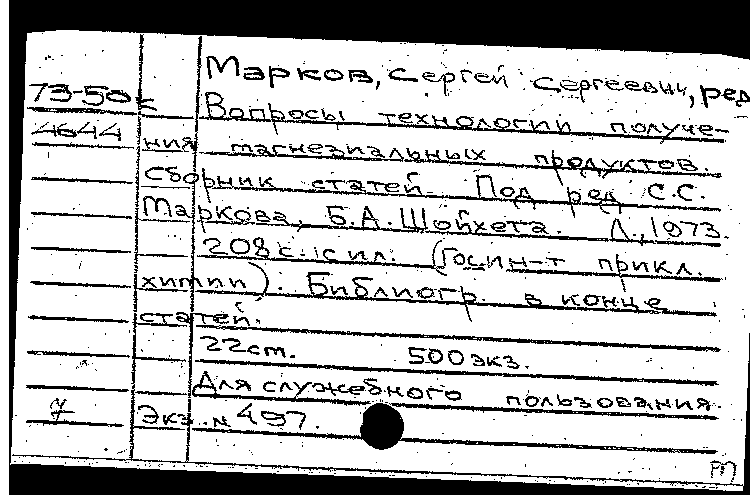 Марков, Сергей Сергеевич, ред.
73-50к Вопросы технологии получе-
4644 ния магнезиальных продуктов.
Сборник статей. Под ред С.С.
Маркова, Б.А. Шойхета. Л., 1973.
208 с. с ил. (Госин-т прикл.
химии). Библиогр. в конце
статей.
22 ст. 500 экз.
Для служебного пользования.
7 Экз. № 497.